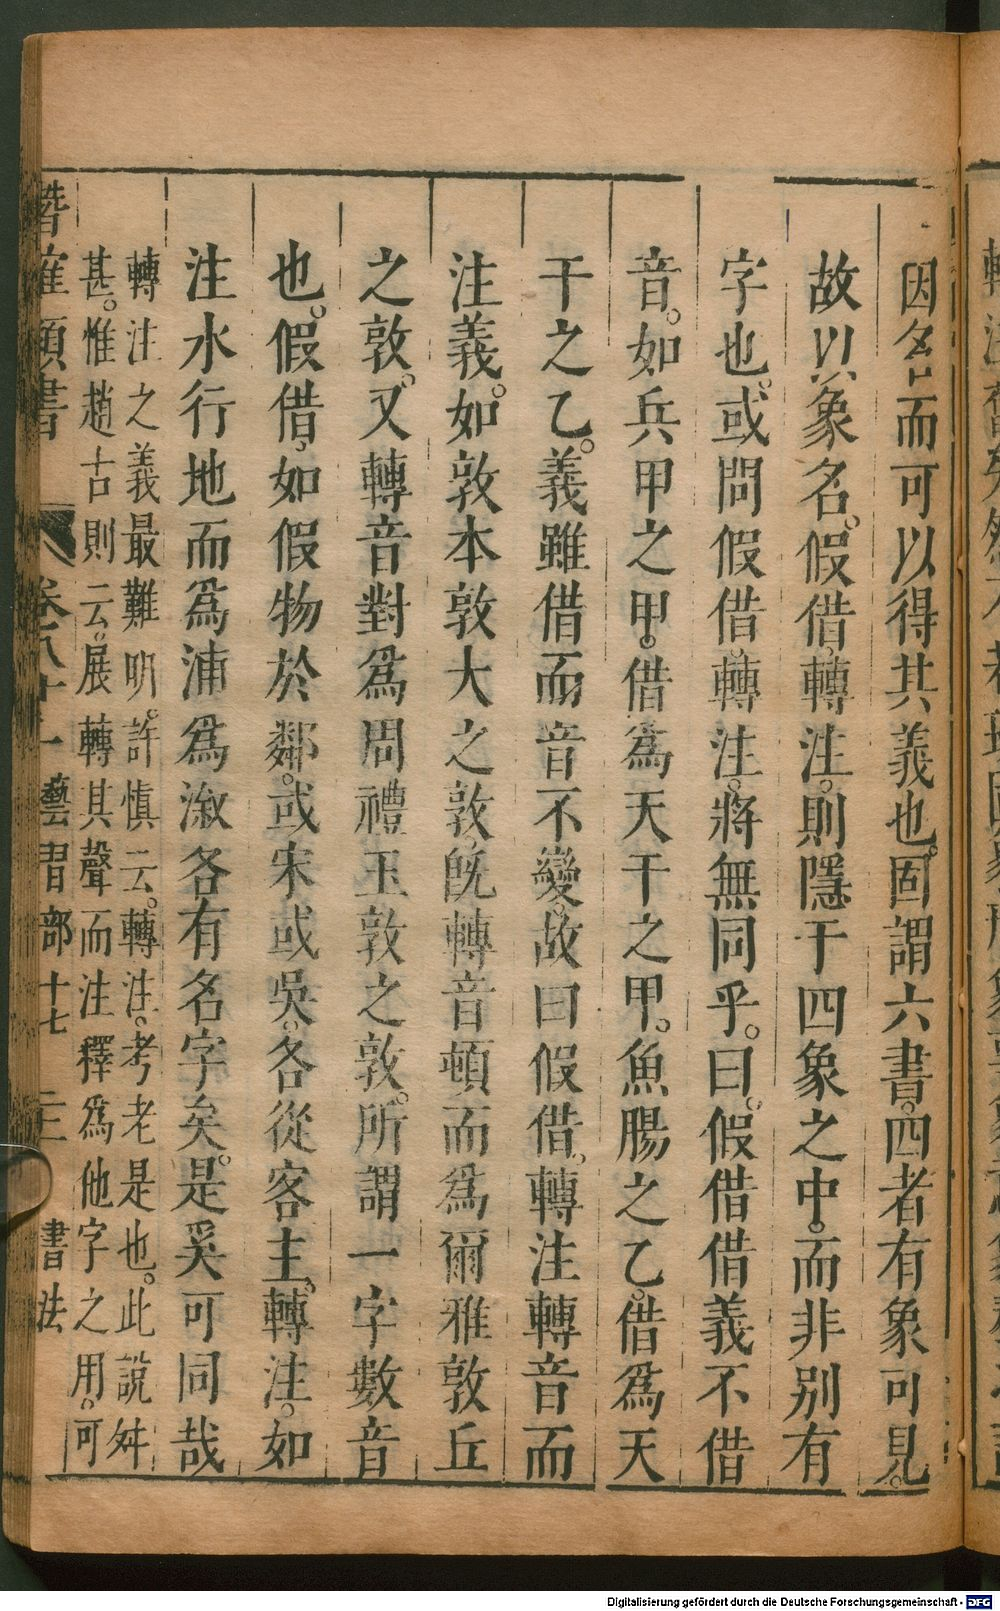 因名而可以得其義也。固謂六書。四者有象可見。
故以象名。假借、轉注。則隱于四象之中。而非別有
字也。或問假借、轉注。將無同乎。曰。假借借義不借
音。如兵甲之甲。借爲天干之甲。魚腸之乙。借爲天
干之乙。義雖借而音不變。故曰假借。轉注轉音而
注義。如敦本敦大之敦。旣轉音頓而爲爾雅敦丘
之敦。又轉音對爲周禮玉敦之敦。所謂一字數音
也。假借、如假物於鄰。或宋或吳。各從客主。轉注。如
注水行地而爲浦爲溆各有名字矣。是奚可同哉
轉注之義最難明。許慎云。轉注。考老是也。此說舛
甚。惟趙古則云。展轉其聲而注釋爲他字之用。可
潛確類書 卷八十一 藝習部十七 書法
Digitalisierung gefördert durch die Deutsche Forschungsgemeinschaft - DFG